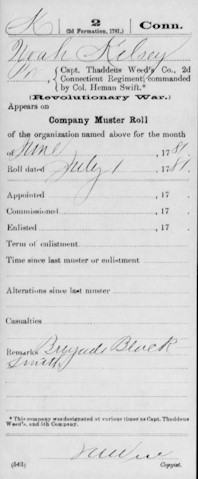 K 2 Conn.
(2d Formation, 1781.)
Noah Kelsey
Capt. Thaddeus Weed's Co., 2d
Connecticut Regiment, commanded
by Col. Heman Swift.*
(Revolutionary War.)
Appears on
Company Muster Roll
of the organization named above for the month
of June, 1781.
Roll dated July 1, 1781.
Appointed , 17 .
Commissioned , 17 .
Enlisted , 17 .
Term of enlistment
Time since last muster or enlistment
Alterations since last muster
Casualties
Remarks Brigade Black
Smith
* This company was designated at various times as Capt. Thaddeus
Weed's, and 5th Company.
(543) Copyist.